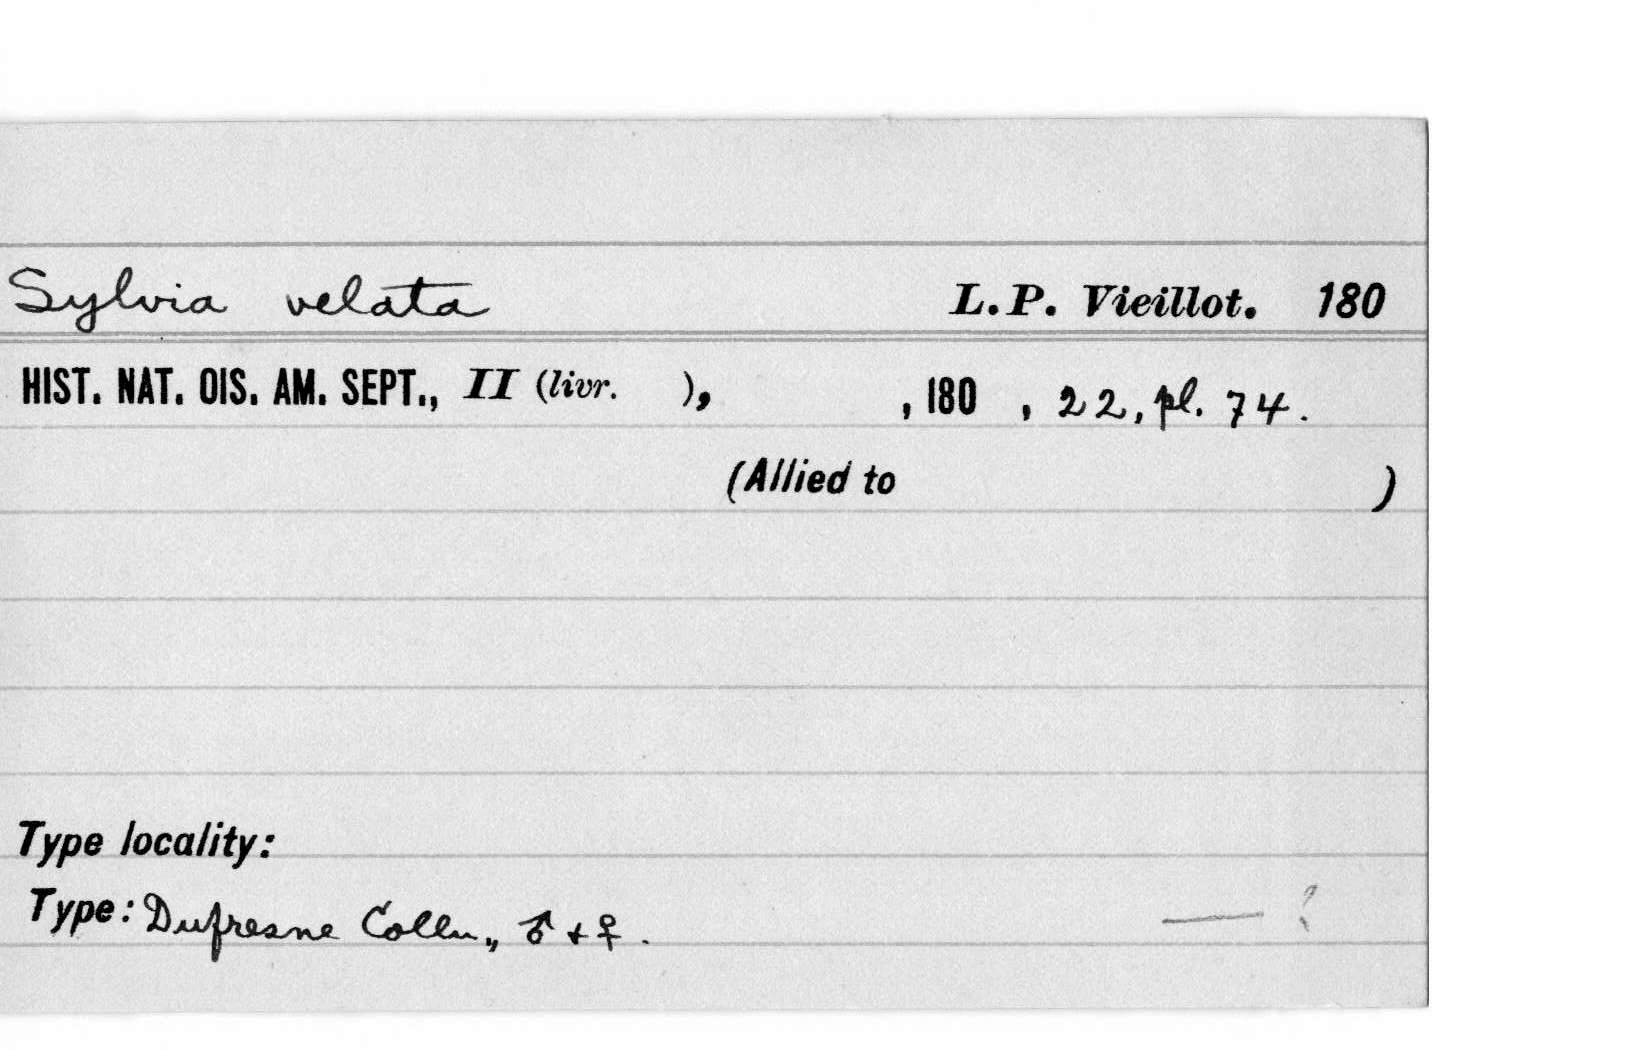 Sylvia velata L.P. Vieillot. 180
HIST. NAT. OIS. AM. SEPT., II (livr. ), , 180 , 22, pl. 74.
(Allied to )
Type locality:
Type: Dufresne Colln., ♂ + ♀. — ?